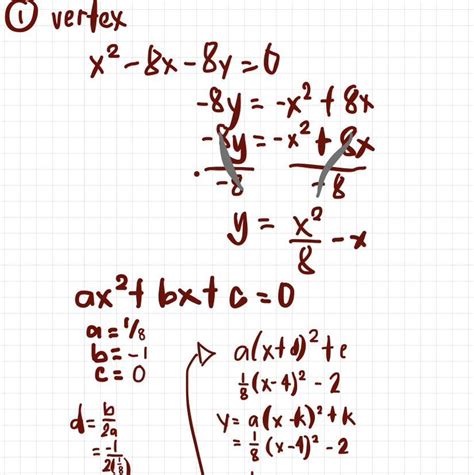 ① vertex
x² - 8x - 8y = 0
-8y = -x² + 8x
-8y = -x² + 8x
-8 -8
y = x²/8 - x
ax² + bx + c = 0
a = 1/8
b = -1
c = 0
d = b/2a
= -1/2(1/8)
a(x+d)² + e
1/8 (x-4)² - 2
y = a(x-k)² + k
= 1/8 (x-4)² - 2